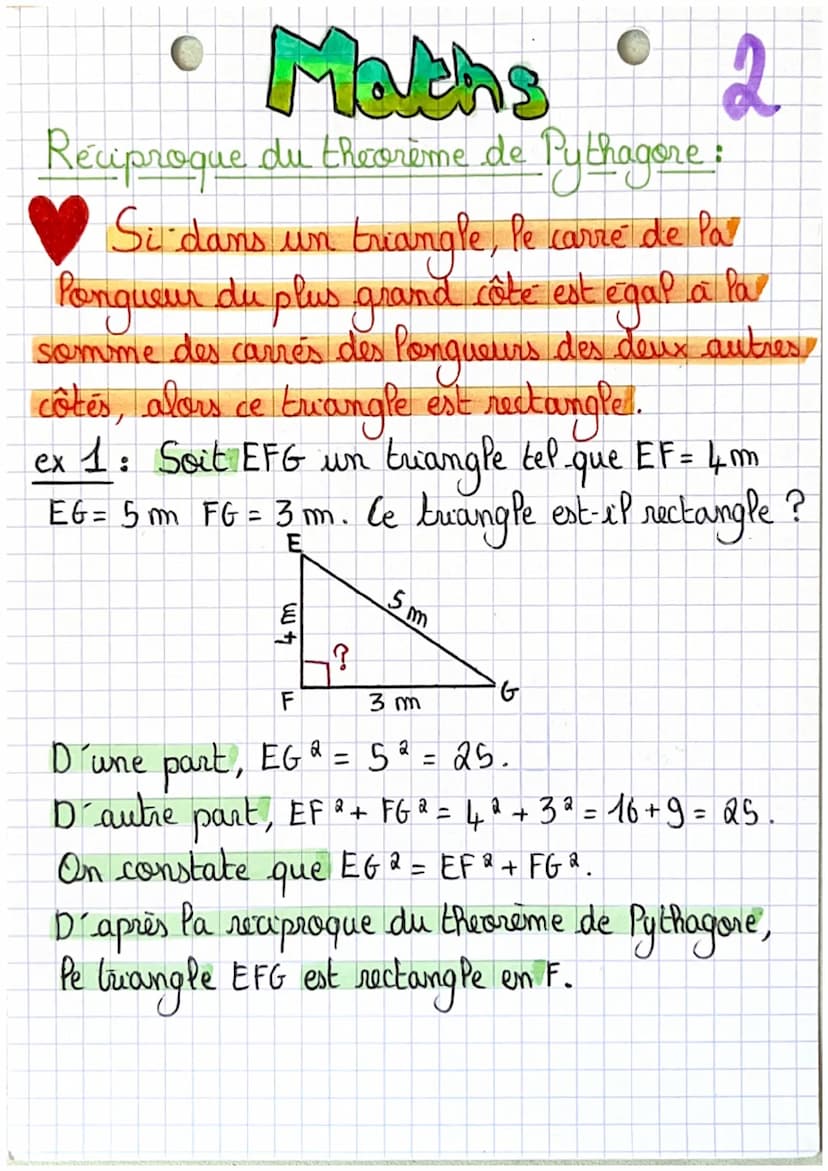 Maths
2
Réciproque du théorème de Pythagore :
Si dans un triangle, le carré de la
longueur du plus grand côté est égal à la
somme des carrés des longueurs des deux autres
côtés, alors ce triangle est rectangle.
ex 1 : Soit EFG un triangle tel que EF = 4 m
EG = 5 m FG = 3 m. Ce triangle est-il rectangle ?
E
5 m
4 m
?
F
3 m
G
D'une part, EG² = 5² = 25.
D'autre part, EF² + FG² = 4² + 3² = 16 + 9 = 25.
On constate que EG² = EF² + FG².
D'après la réciproque du théorème de Pythagore,
le triangle EFG est rectangle en F.